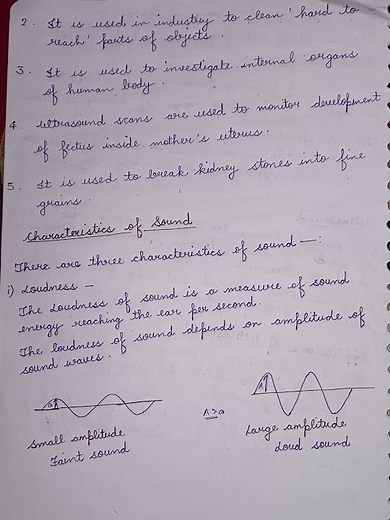 2. It is used in industry to clean 'hard to
reach' parts of objects.
3. It is used to investigate internal organs
of human body.
4. ultrasound scans are used to monitor development
of foetus inside mother's uterus.
5. It is used to break kidney stones into fine
grains.
Characteristics of Sound
There are three characteristics of sound —:
i) Loudness —
The Loudness of sound is a measure of sound
energy reaching the ear per second.
The loudness of sound depends on amplitude of
sound waves.
a
A
A>a
Small amplitude
Faint sound
Large amplitude
Loud sound